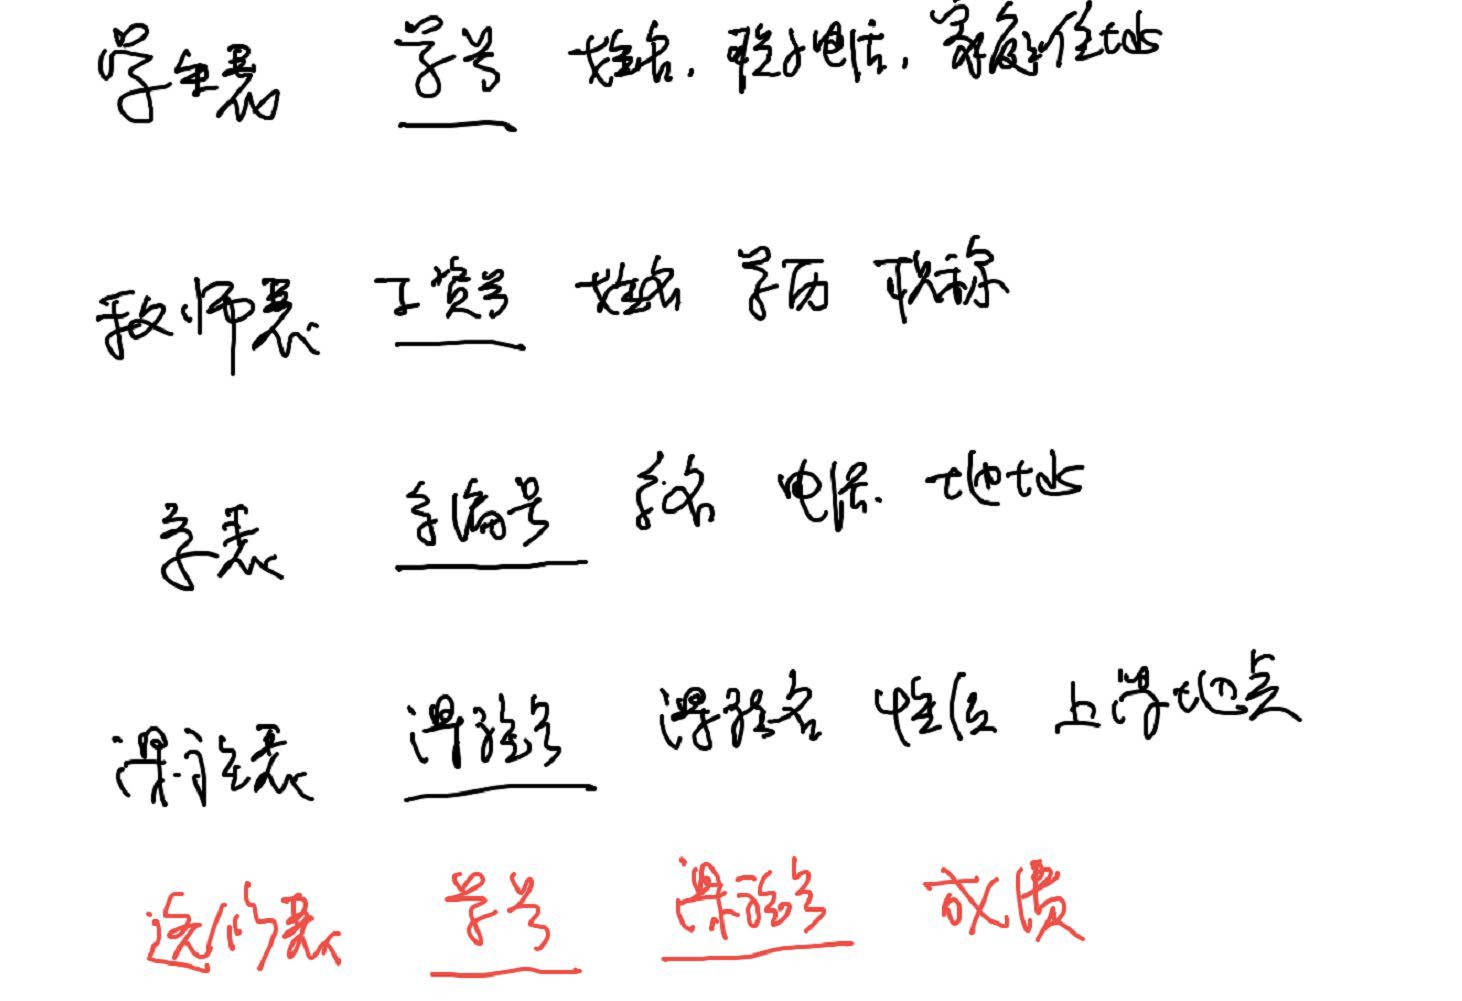 学生表 学号 姓名. 联系电话. 家庭住址
教师表 工资号 姓名 学历 职称
系表 系编号 系名 电话. 地址
课程表 课程号 课程名 性质 上课地点
选修表 学号 课程号 成绩